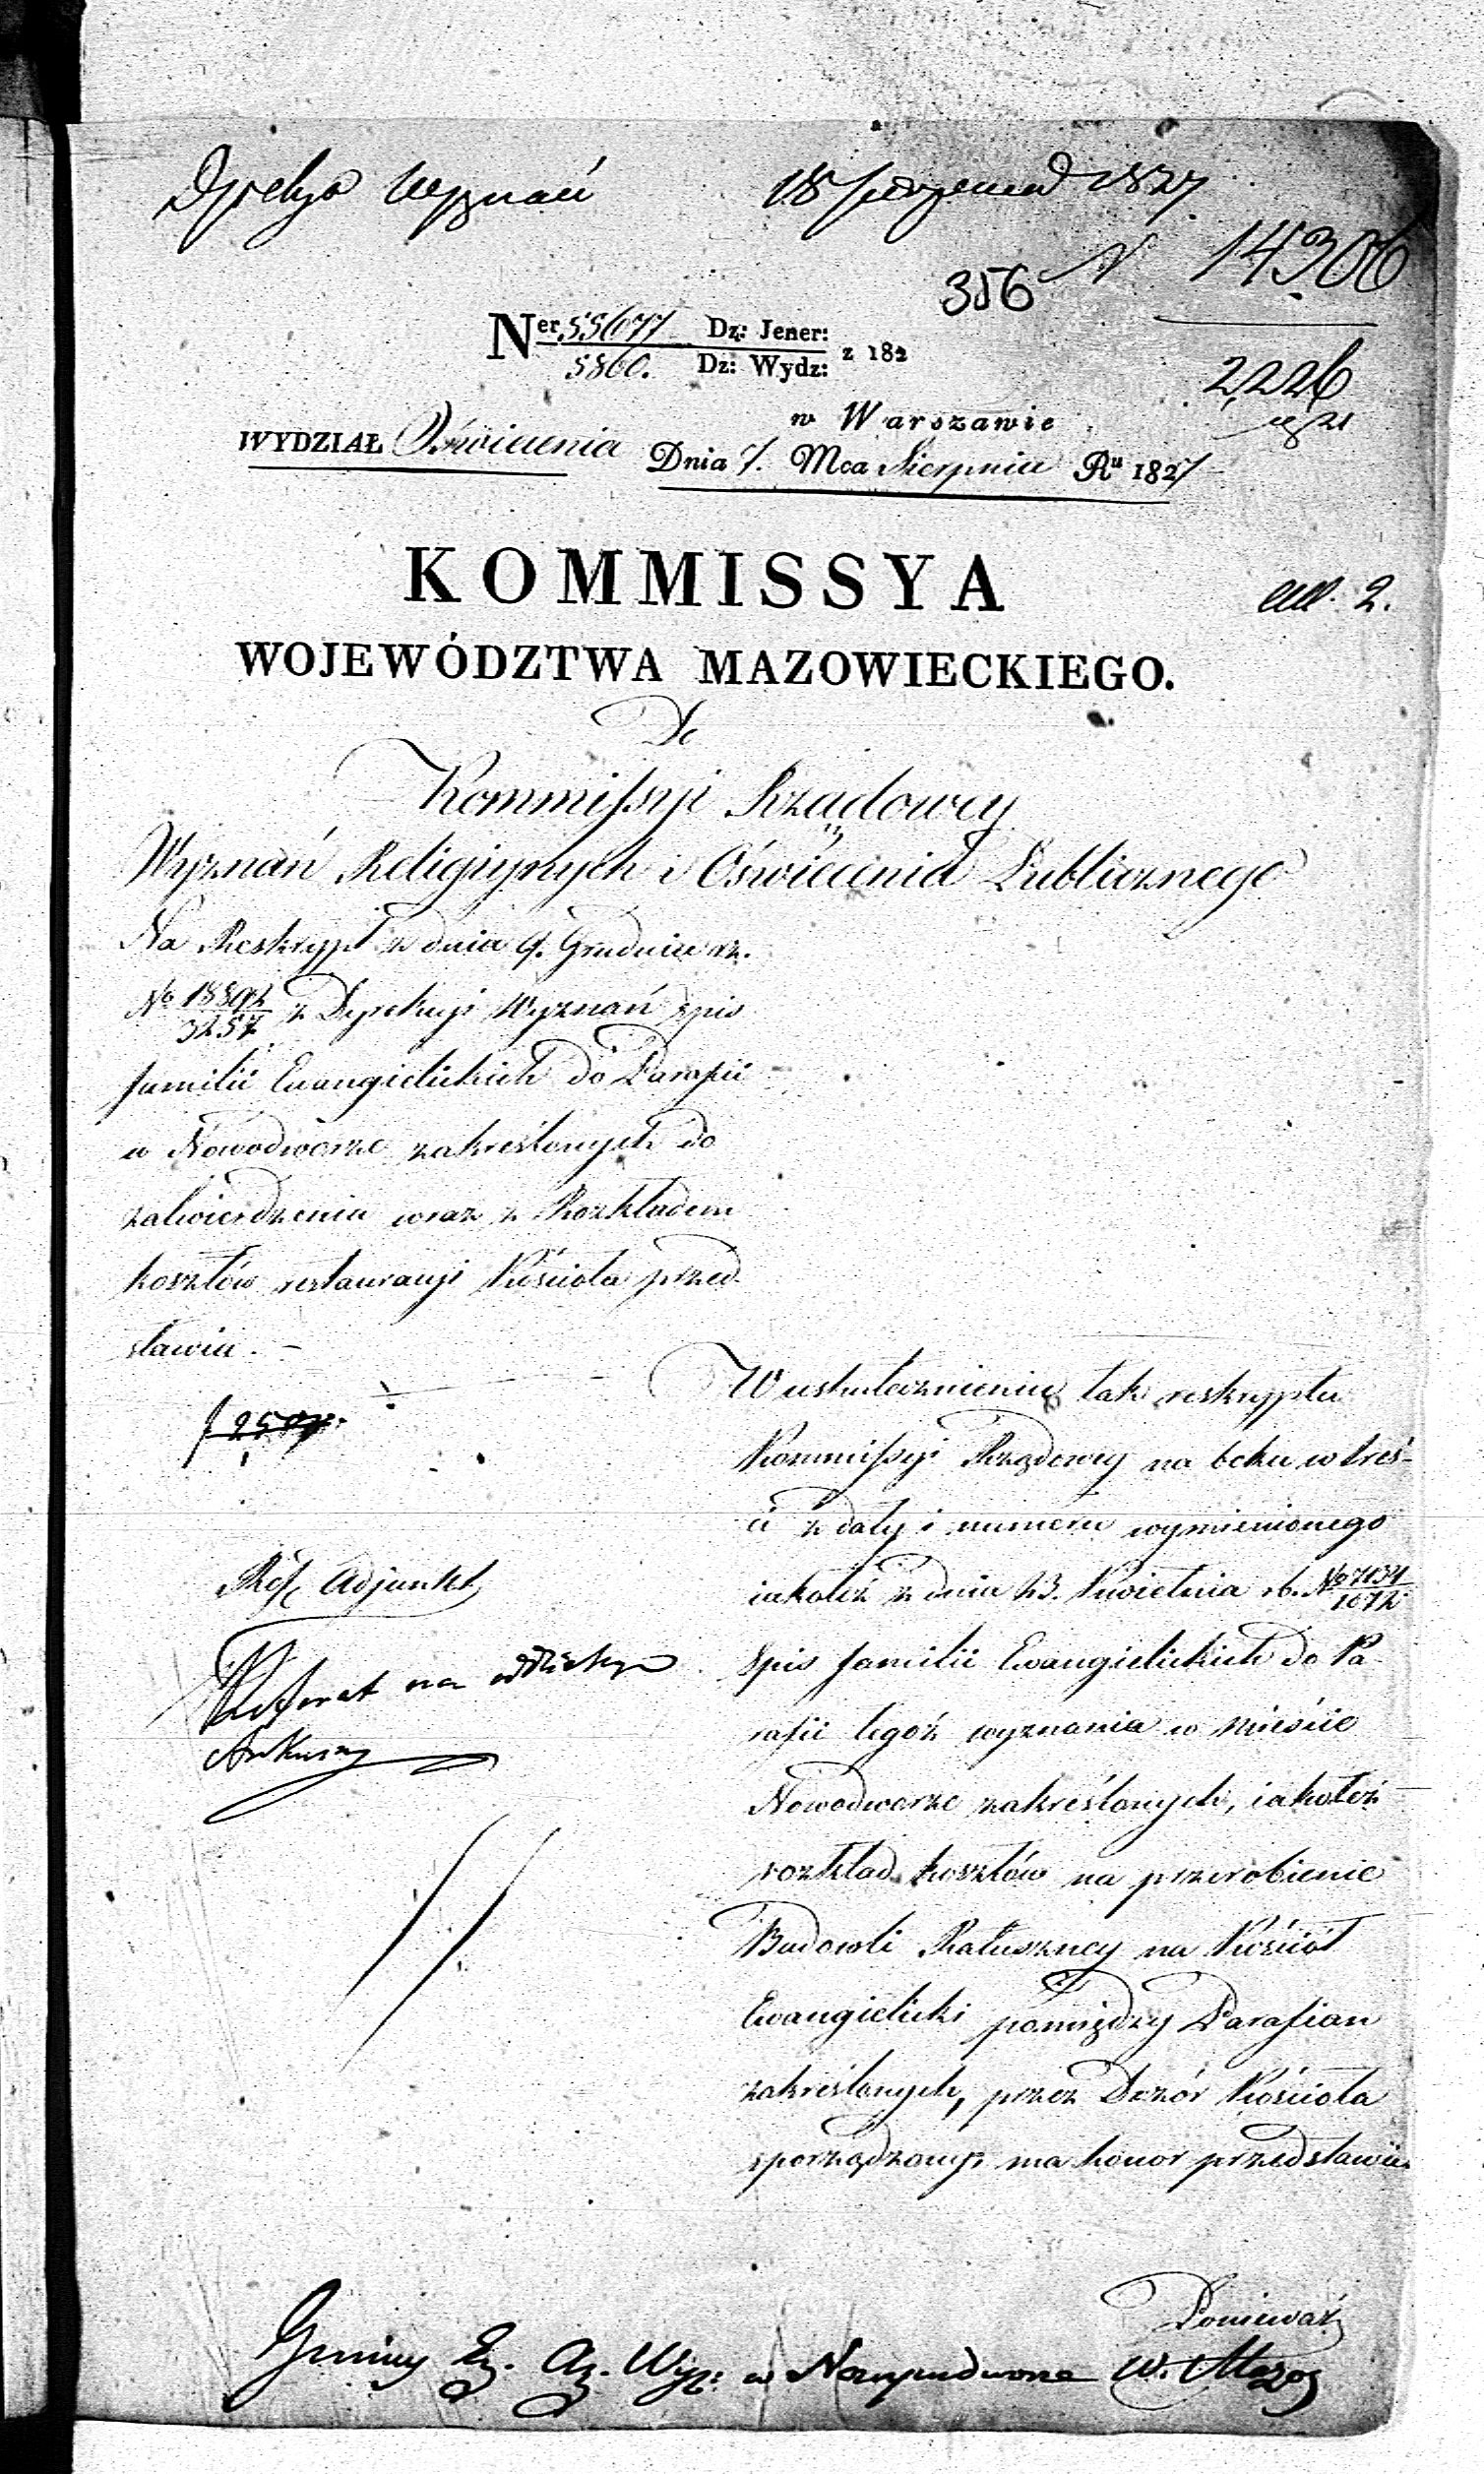 Dyrekcya Wyznań 18 sierpnia 1827
N 14306
356
Ner 55677 Dz: Jener: z 182
5860. Dz: Wydz:
2226
w Warszawie
WYDZIAŁ Oświecenia Dnia 7. Mca Sierpnia Ru 1827
KOMMISSYA
WOJEWÓDZTWA MAZOWIECKIEGO.
2.
Do
Kommissyi Rządowey
Wyznań Religiynych i Oświecenia Publicznego
Na Reskrypt z dnia 9. Grudnia rz.
No 18892/3257 z Dyrekcyi Wyznań spis
familii Ewangielickich do Parafii
w Nowodworze zakreślonych do
zatwierdzenia wraz z Rozkładem
kosztów restauracyi Kościoła przed
stawia. –
W uskutecznieniu tak reskryptu
Kommissyi Rządowey na boku w treś-
ci z daty i numeru wymienionego
iakoteż z dnia 23. Kwietnia rb. No 7134/1072
Spis familii Ewangielickich do Pa-
rafii tegoż wyznania w mieście
Nowodworze zakreślonych, iakoteż
rozkład kosztów na przerobienie
Budowli Ratuszney na Kościół
Ewangielicki pomiędzy Parafian
zakreślonych, przez Dozór Kościoła
sporządzony, ma honor przedstawić.
Adjunkt
Referat na oddzielnym
Arkuszu
Ponieważ
Gminy Ew. Aug. Wyz: w Nowymdworze W. Mazow